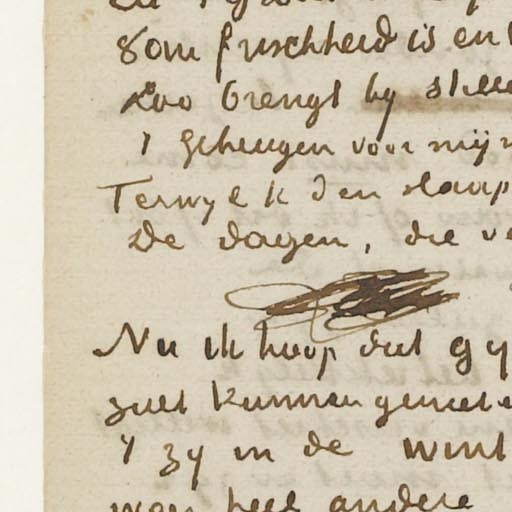 vom frischheid is en
zoo brengt by stille
't geheugen voor mijn
Terwyl k den slaap
De dagen, die v
Nu ik hoop dat gy
zult kunnen geniet
't zy in de wint
heel andere